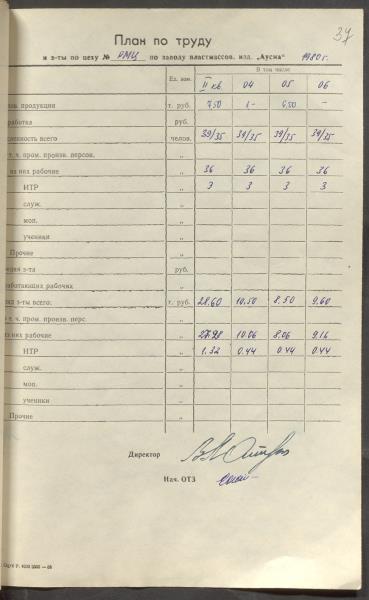 37
План по труду
и з-ты по цеху № РМЦ по заводу пластмассов. изд. „Аусма" 1980 г.
Ед. изм. В том числе
II кв 04 05 06
продукции т. руб. 7,50 1- 6,50 -
работка руб.
ленность всего челов. 39/35 39/35 39/35 39/35
т. ч. пром. произв. персон. „
из них рабочие „ 36 36 36 36
ИТР „ 3 3 3 3
служ. „
моп. „
ученики „
Прочие „
з-та руб.
работающих рабочих „
з-ты всего: т. руб. 28.60 10.50 8.50 9.60
т. ч. пром. произв. перс. „
из них рабочие „ 27.28 10.06 8.06 9.16
ИТР „ 1.32 0.44 0.44 0.44
служ. „
моп. „
ученики „
Прочие „
Директор
Нач. ОТЗ